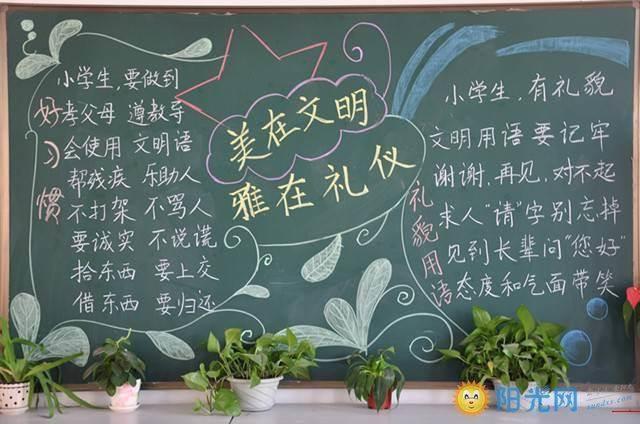 好习惯
小学生，要做到
孝父母 遵教导
会使用 文明语
帮残疾 乐助人
不打架 不骂人
要诚实 不说谎
拾东西 要上交
借东西 要归还
美在文明
雅在礼仪
礼貌用语
小学生，有礼貌
文明用语要记牢
谢谢，再见，对不起
求人“请”字别忘掉
见到长辈问“您好”
态度和气面带笑
阳光网